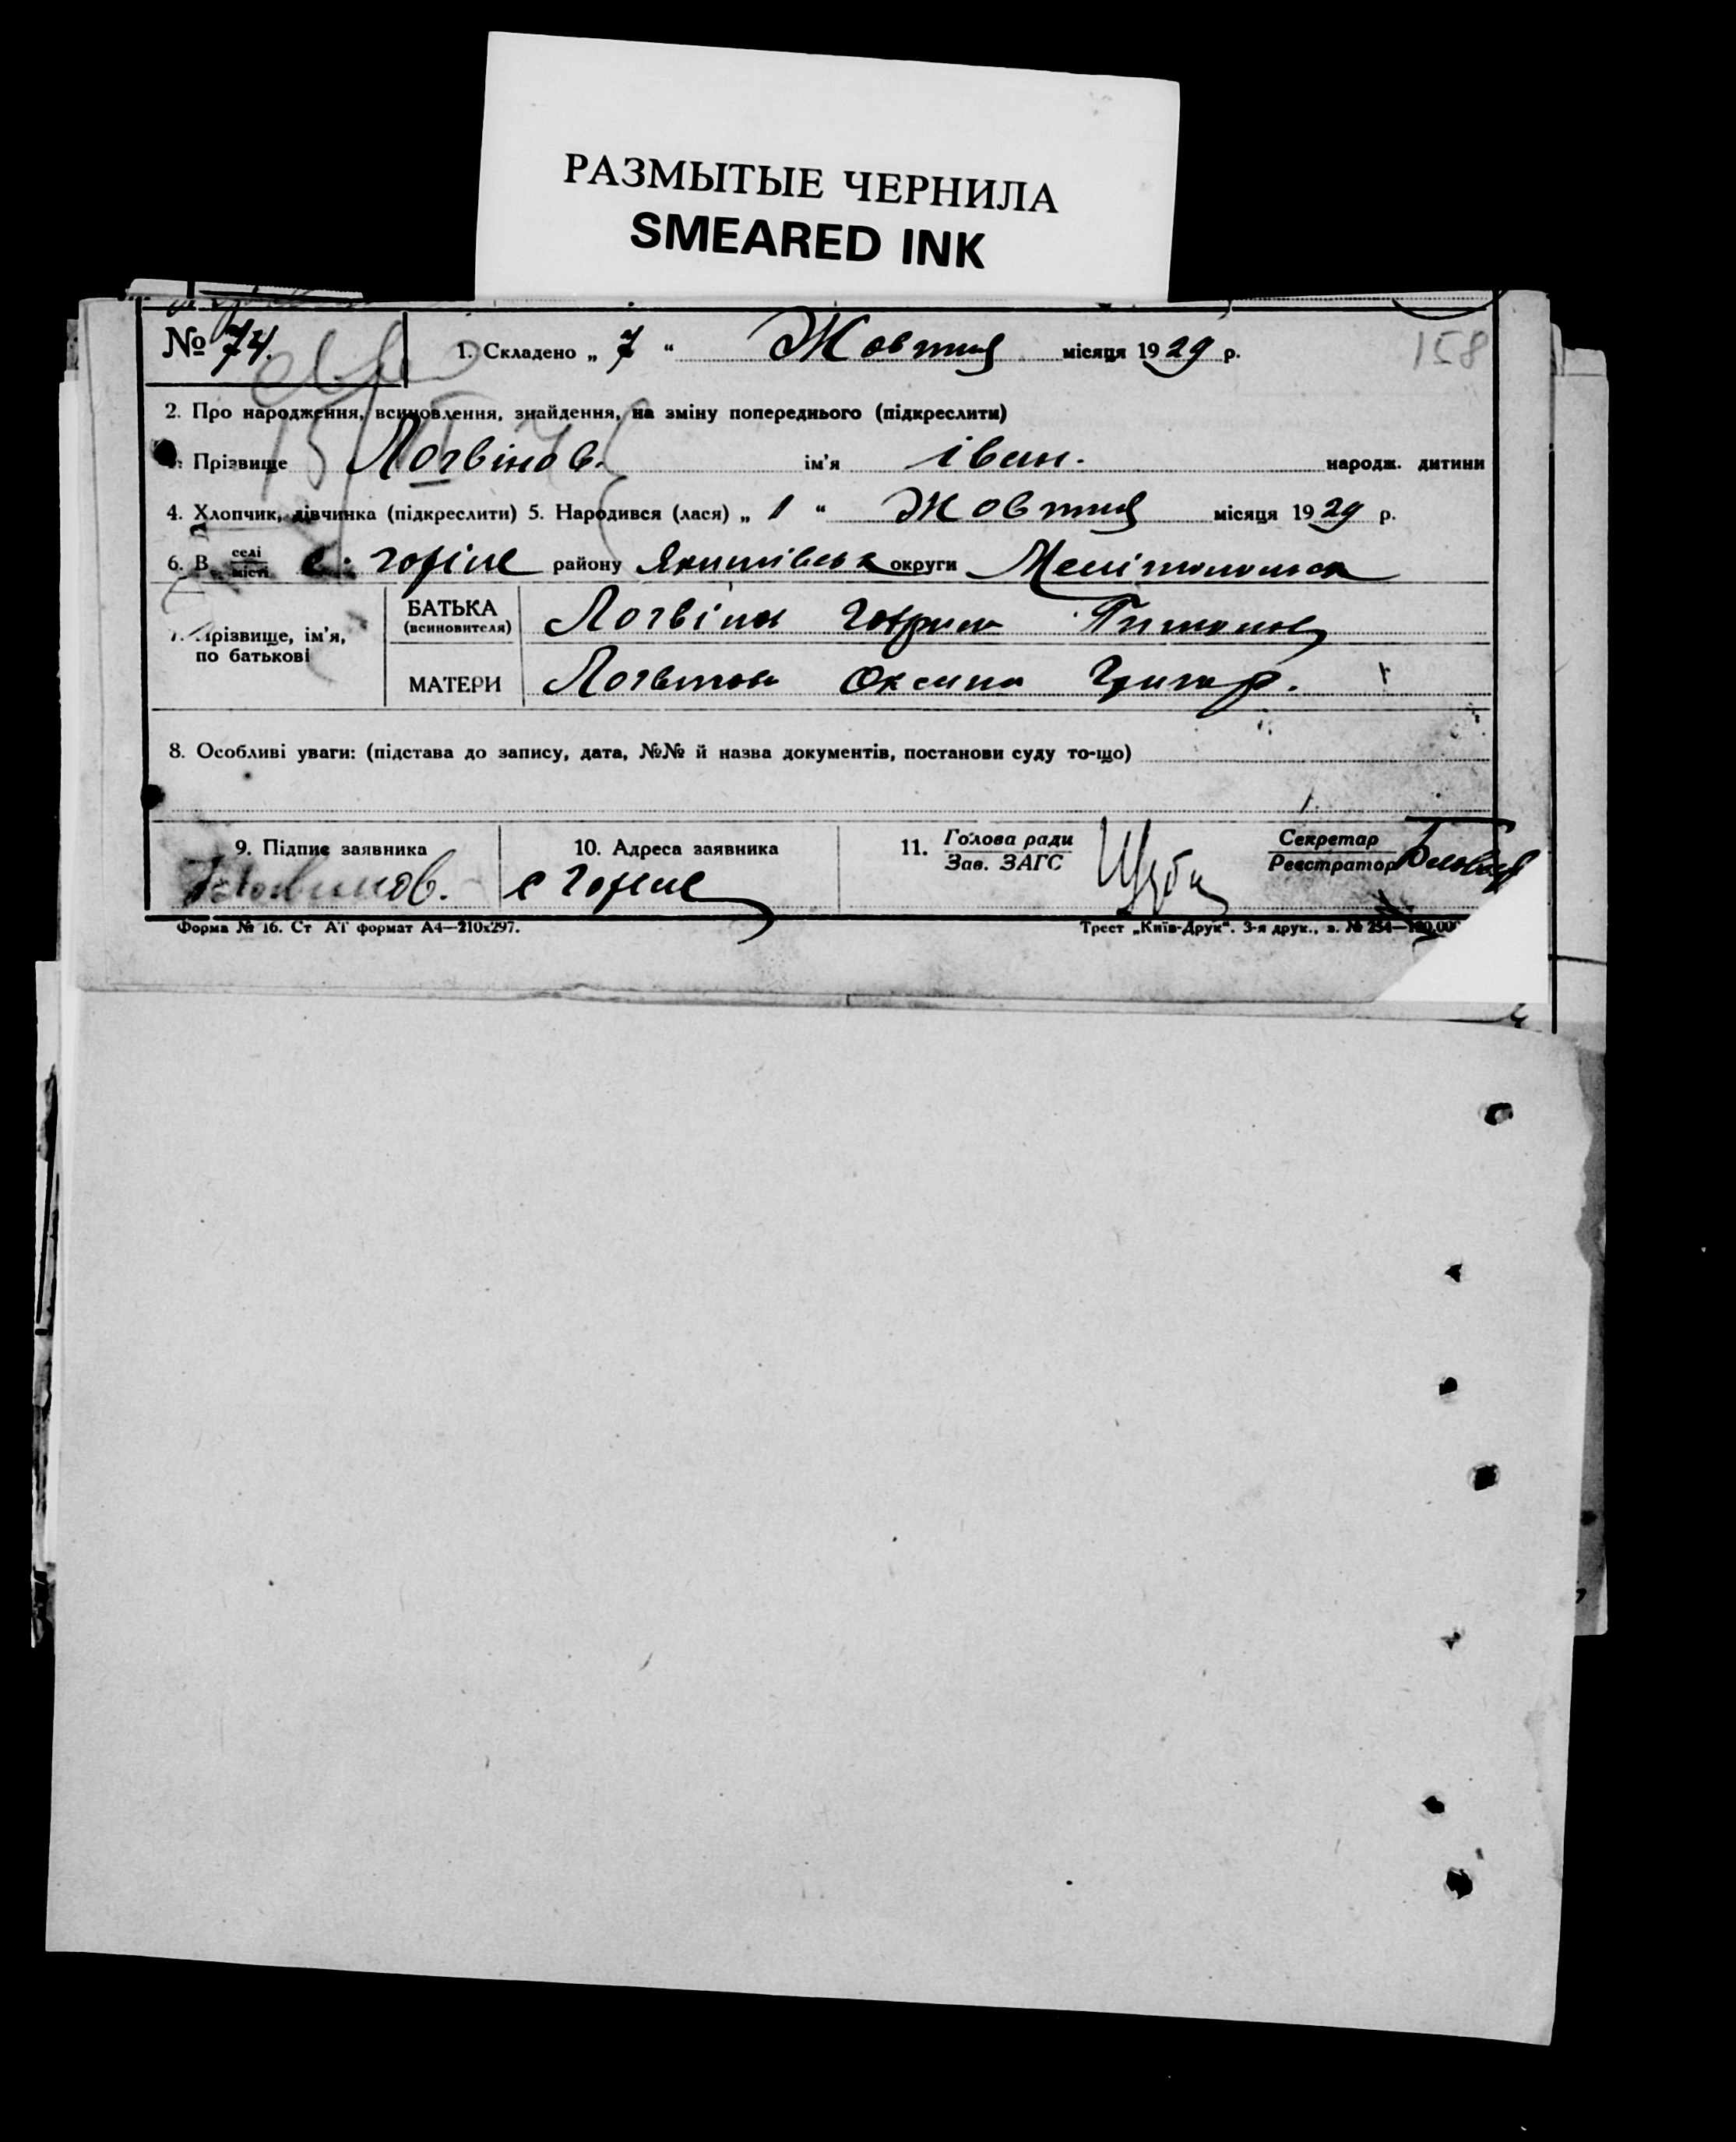 РАЗМЫТЫЕ ЧЕРНИЛА
SMEARED INK
№ 74. 1. Складено „ 7 “ Жовтня місяця 1929 р. 158
2. Про народження, всиновлення, знайдення, на зміну попереднього (підкреслити)
Прізвище Логвінов. ім'я іван. народж. дитини
4. Хлопчик, дівчинка (підкреслити) 5. Народився (лася) „ 1 “ Жовтня місяця 1929 р.
6. В селі місті с. горіле району Якимівськ округи Мелітопольськ
7. Прізвище, ім'я, по батькові
БАТЬКА (всиновителя) Логвінов
МАТЕРИ Логвинова Оксана Григор.
8. Особливі уваги: (підстава до запису, дата, №№ й назва документів, постанови суду то-що)
9. Підпис заявника 10. Адреса заявника 11. Голова ради Зав. ЗАГС Секретар Реєстратор
с горіле
Форма № 16. Ст АТ формат А4—210х297. Трест „Київ-Друк“. 3-я друк., з. № 254—